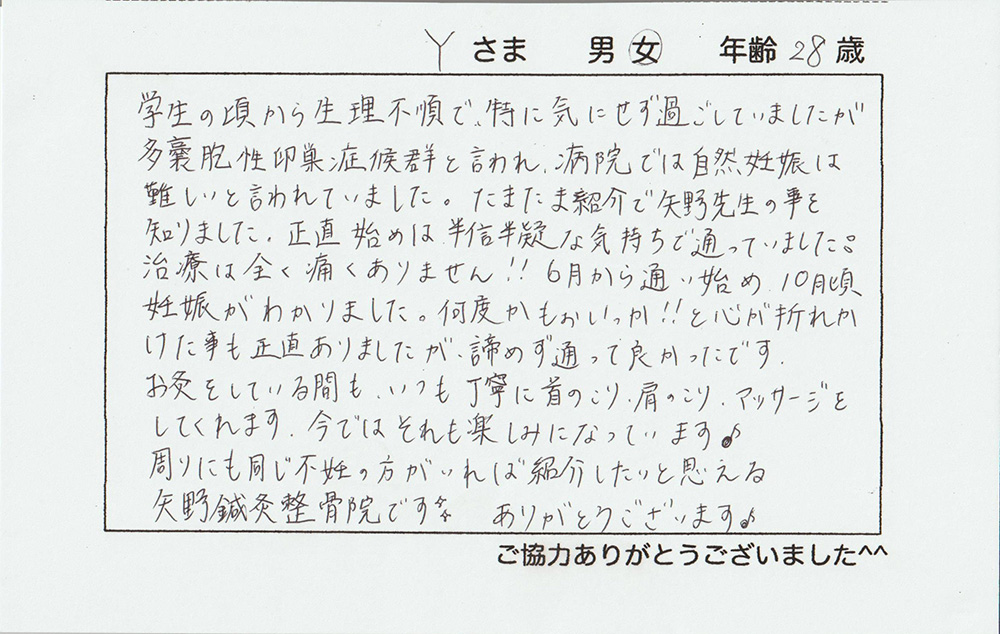 Yさま 男 女 年齢 28 歳
学生の頃から生理不順で、特に気にせず過ごしていましたが
多嚢胞性卵巣症候群と言われ、病院では自然妊娠は
難しいと言われていました。たまたま紹介で矢野先生の事を
知りました。正直始めは半信半疑な気持ちで通っていました。
治療は全く痛くありません!! 6月から通い始め、10月頃
妊娠がわかりました。何度かもぉいっか!!と心が折れか
けた事も正直ありましたが、諦めず通って良かったです。
お灸をしている間も、いつも丁寧に首のこり、肩のこり、マッサージを
してくれます。今ではそれも楽しみになっています♪
周りにも同じ不妊の方がいれば紹介したいと思える
矢野鍼灸整骨院です ありがとうございます♪
ご協力ありがとうございました^^